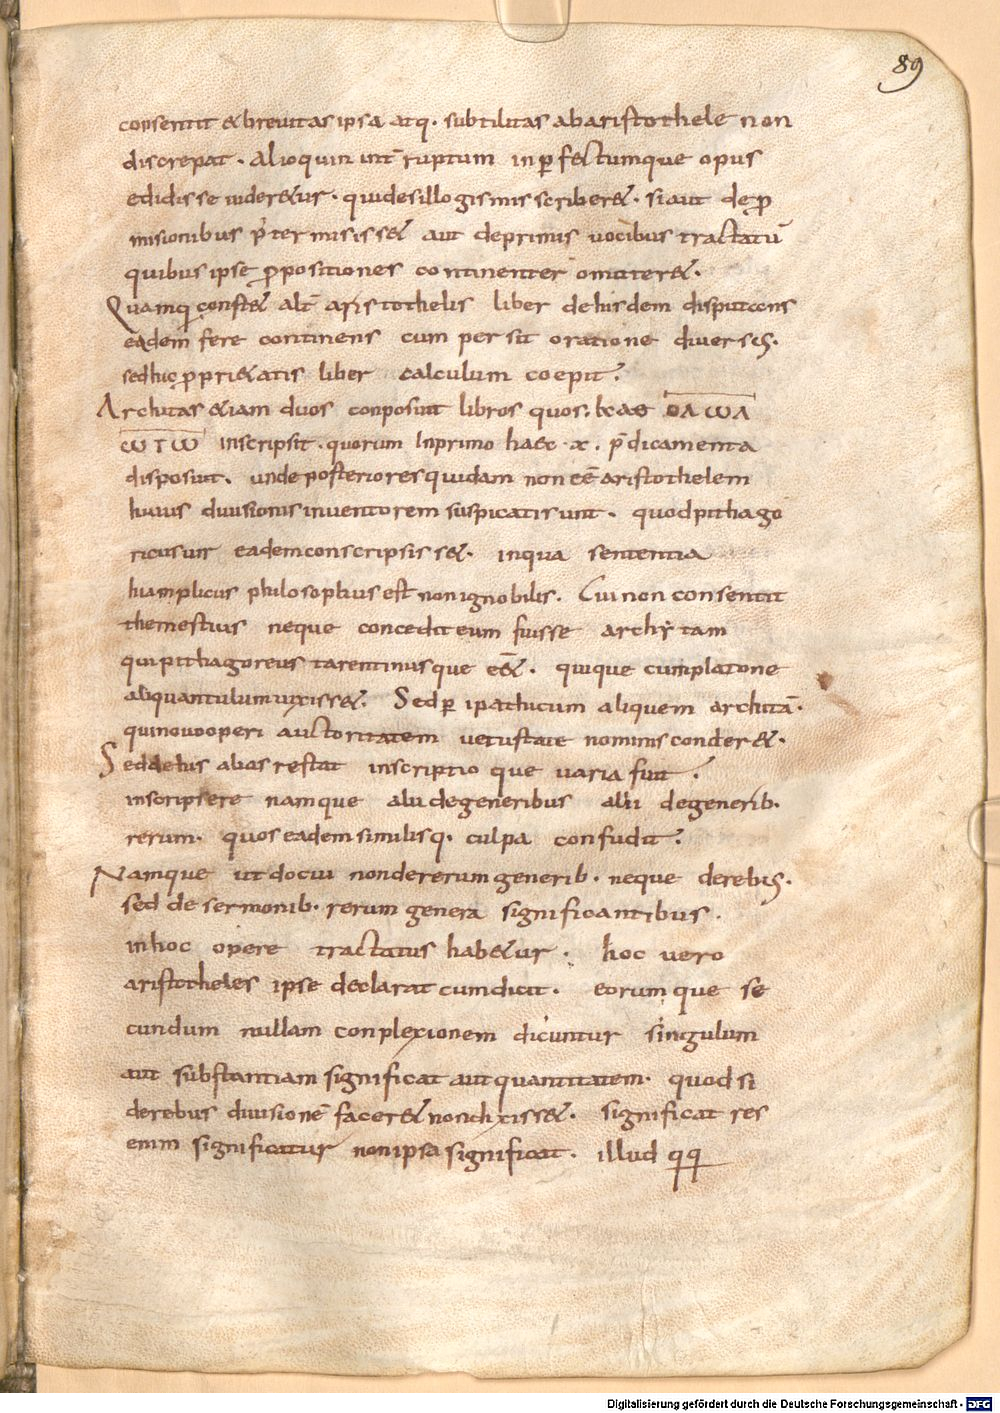 89
consentit & brevitas ipsa atq· subtilitas abaristothele non
discrepat· Alioquin int̄ruptum inp̄fectumque opus
edidisse uider&ur· quidesillogismis scriber&· siaut dep̄
misionibus p̄termisiss& aut deprimis uocibus tractatū
quibus ipse p̄positiones continenter omitter&·
Quamq const& alt̄ aristothelis liber dehisdem disputans
eadem fere continens cum per sit oratione diuersus·
sedhic ppri&atis liber calculum coepit·
Architas &iam duos conposuit libros quos· ΟΛѠΛ
ѠΤѠ inscripsit· quorum Inprimo haec ·x· p̄dicamenta
disposuit· unde posteriores quidam non eē aristothelem
huius diuisionis inuentorem suspicatisunt· quod pithago
ricusuir eademconscripsiss&· inqua sententia
hiamplicus philosophus est nonignobilis· Cui non consentit
themestius neque concedit eum fuisse archytam
qui pithagoreus tarentinusque eēs&· quique cumplatone
aliquantulumuixiss&· Sed p̄ipathicum aliquem architā·
quinouooperi auctoritatem uetustate nominis conder&·
Seddehis abas restat inscriptio que uaria fuit·
inscripsere namque alii degeneribus alii degenerib·
rerum· quos eadem similisq· culpa confudit·
Namque ut docui nondererum generib· neque derebus·
sed de sermonib· rerum genera significantibus·
inhoc opere tractatus hab&ur· hoc uero
aristotheles ipse declarat cumdicit· eorum que se
cundum nullam conplexionem dicuntur singulum
aut substantiam significat aut quantitatem· quod si
derebus diuisionē facer& nondixiss&· significat res
enim significatur non ipsa significat· illud qq
Digitalisierung gefördert durch die Deutsche Forschungsgemeinschaft - DFG